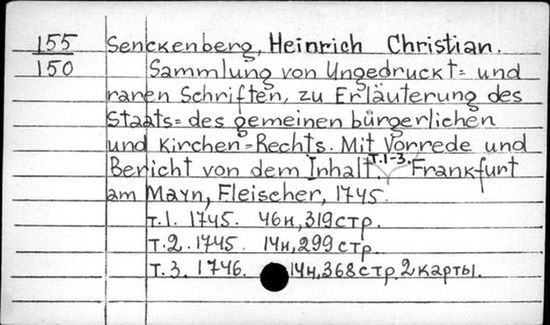 155 Senckenberg, Heinrich Christian.
150 Sammlung von Ungedruckt= und
raren Schriften, zu Erläuterung des
Staats= des gemeinen bürgerlichen
und Kirchen=Rechts. Mit Vorrede und
Bericht von dem Inhalt. т.1-3. Frankfurt
am Mayn, Fleischer, 1745.
т.1. 1745. 46н, 319 стр.
т.2. 1745. 14н, 299 стр.
т.3. 1746. 14н, 368 стр. 2 карты.